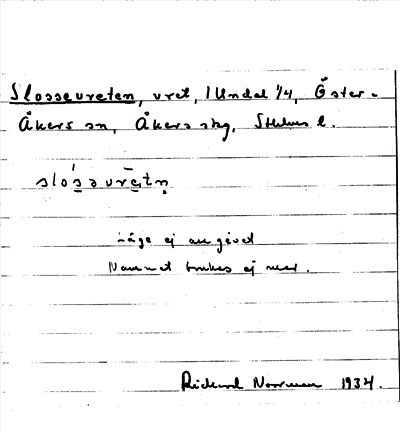 Slossevreten, vret, 1 Undal 1/4, Öster-
Åkers sn, Åkers skg, Sthlms l.
slosəvretn̥
Läge ej angivet
Namnet brukas ej mer.
Rickard Norrman 1934.